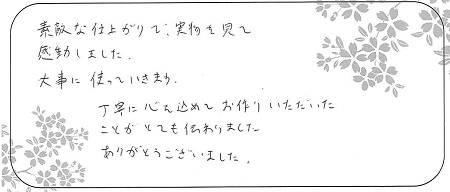 素敵な仕上がりで、実物を見て
感動しました。
大事に使っていきます。
丁寧に心を込めてお作りいただいた
ことがとても伝わりました
ありがとうございました。